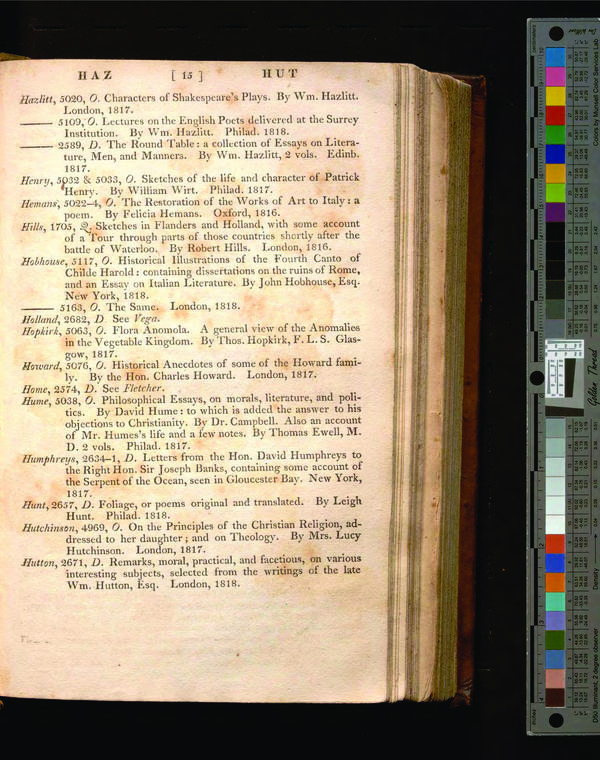 HAZ [ 15 ] HUT
Hazlitt, 5020, O. Characters of Shakespeare's Plays. By Wm. Hazlitt.
London, 1817.
——— 5109, O. Lectures on the English Poets delivered at the Surrey
Institution. By Wm. Hazlitt. Philad. 1818.
——— 2589, D. The Round Table: a collection of Essays on Litera-
ture, Men, and Manners. By Wm. Hazlitt, 2 vols. Edinb.
1817.
Henry, 5032 & 5033, O. Sketches of the life and character of Patrick
Henry. By William Wirt. Philad. 1817.
Hemans, 5022-4, O. The Restoration of the Works of Art to Italy: a
poem. By Felicia Hemans. Oxford, 1816.
Hills, 1705, Q. Sketches in Flanders and Holland, with some account
of a Tour through parts of those countries shortly after the
battle of Waterloo. By Robert Hills. London, 1816.
Hobhouse, 5117, O. Historical Illustrations of the Fourth Canto of
Childe Harold: containing dissertations on the ruins of Rome,
and an Essay on Italian Literature. By John Hobhouse, Esq.
New York, 1818.
——— 5163, O. The Same. London, 1818.
Holland, 2682, D. See Vega.
Hopkirk, 5063, O. Flora Anomola. A general view of the Anomalies
in the Vegetable Kingdom. By Thos. Hopkirk, F. L. S. Glas-
gow, 1817.
Howard, 5076, O. Historical Anecdotes of some of the Howard fami-
ly. By the Hon. Charles Howard. London, 1817.
Home, 2574, D. See Fletcher.
Hume, 5038, O. Philosophical Essays, on morals, literature, and poli-
tics. By David Hume: to which is added the answer to his
objections to Christianity. By Dr. Campbell. Also an account
of Mr. Humes's life and a few notes. By Thomas Ewell, M.
D. 2 vols. Philad. 1817.
Humphreys, 2634-1, D. Letters from the Hon. David Humphreys to
the Right Hon. Sir Joseph Banks, containing some account of
the Serpent of the Ocean, seen in Gloucester Bay. New York,
1817.
Hunt, 2657, D. Foliage, or poems original and translated. By Leigh
Hunt. Philad. 1818.
Hutchinson, 4969, O. On the Principles of the Christian Religion, ad-
dressed to her daughter; and on Theology. By Mrs. Lucy
Hutchinson. London, 1817.
Hutton, 2671, D. Remarks, moral, practical, and facetious, on various
interesting subjects, selected from the writings of the late
Wm. Hutton, Esq. London, 1818.
Colors by Munsell Color Services Lab
Golden Thread
Density
D50 Illuminant, 2 degree observer
inches